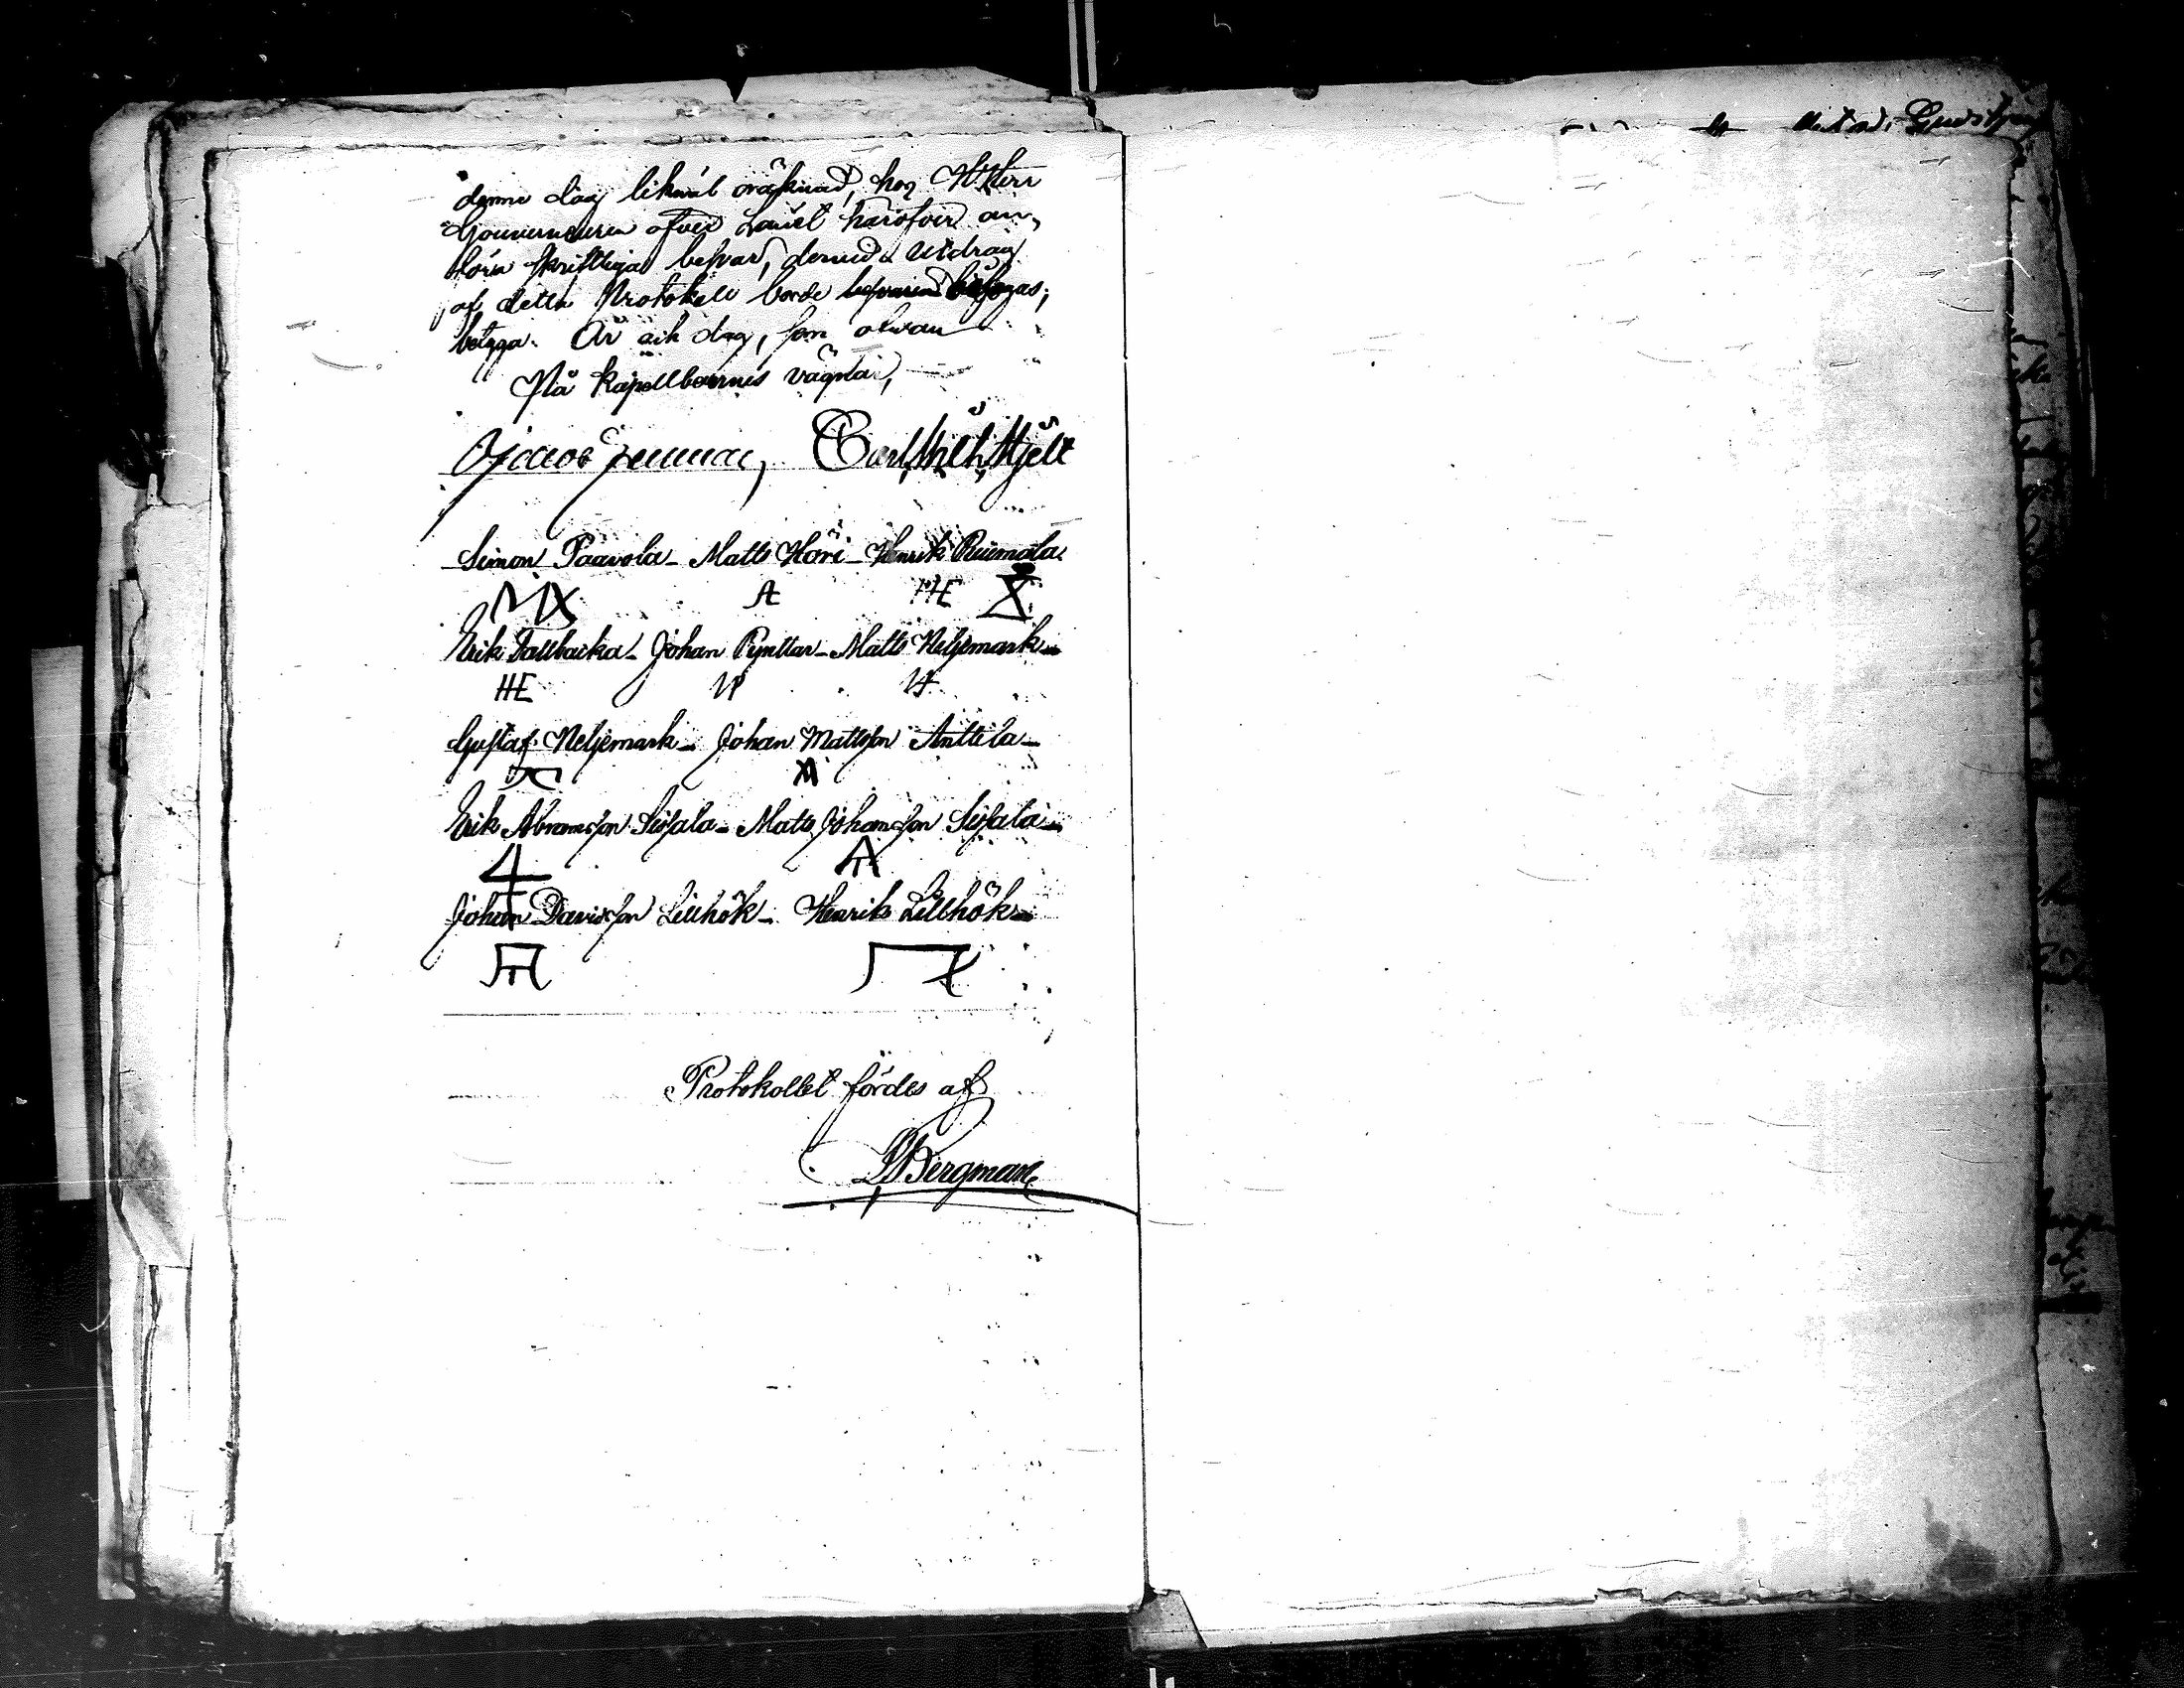 denna dag likväl oräknad, hos H. Herr
Gouverneuren öfver Länet häröfver an,
föra skriftliga besvär, dervid Utdrag
af detta Protokoll borde bifogas;
betyga. År och dag, som ofvan
På Kapellboernes vägnar,
Carl Wilh. Hjelt
Simon Paavola - Matts Höri - Henrik
HE
Erik Dallbacka - Johan Pynttar - Matts Neljemark -
HE
Gustaf Neljemark - Johan Mattsson Anttila -
Erik Abramsson Sisjala - Matts Johansson Sisjala -
Johan Davidsson Lillhök - Henrik Lillhök -
Protokollet fördes af
Bergman